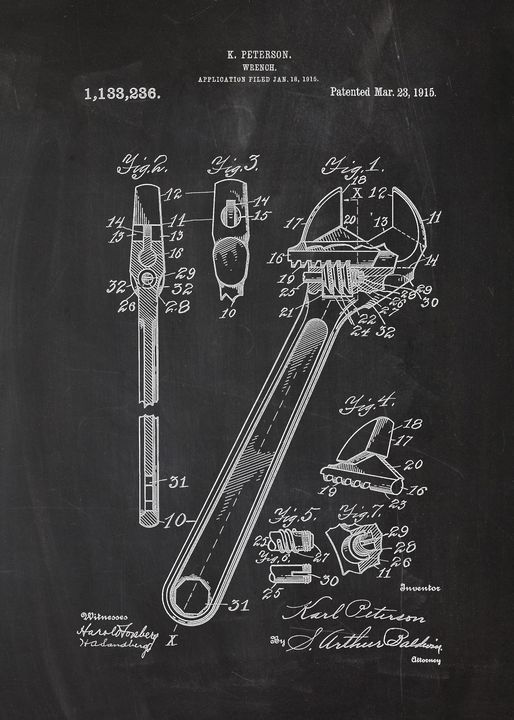 K. PETERSON.
WRENCH.
APPLICATION FILED JAN. 18, 1915.
1,133,236.
Patented Mar. 23, 1915.
Fig. 2.
Fig. 3.
Fig. 1.
18
12
14
15
X
12
11
17
20
13
14
11
14
13
13
16
16
14
19
29
32
32
25
29
30
26
28
10
21
26
28
27
22
24
32
Fig. 4.
18
17
20
19
16
23
31
10
Fig. 5.
Fig. 7.
25
27
29
Fig. 6.
28
30
26
25
11
31
X
Witnesses
Inventor
Karl Peterson
By S. Arthur Baldwin,
Attorney